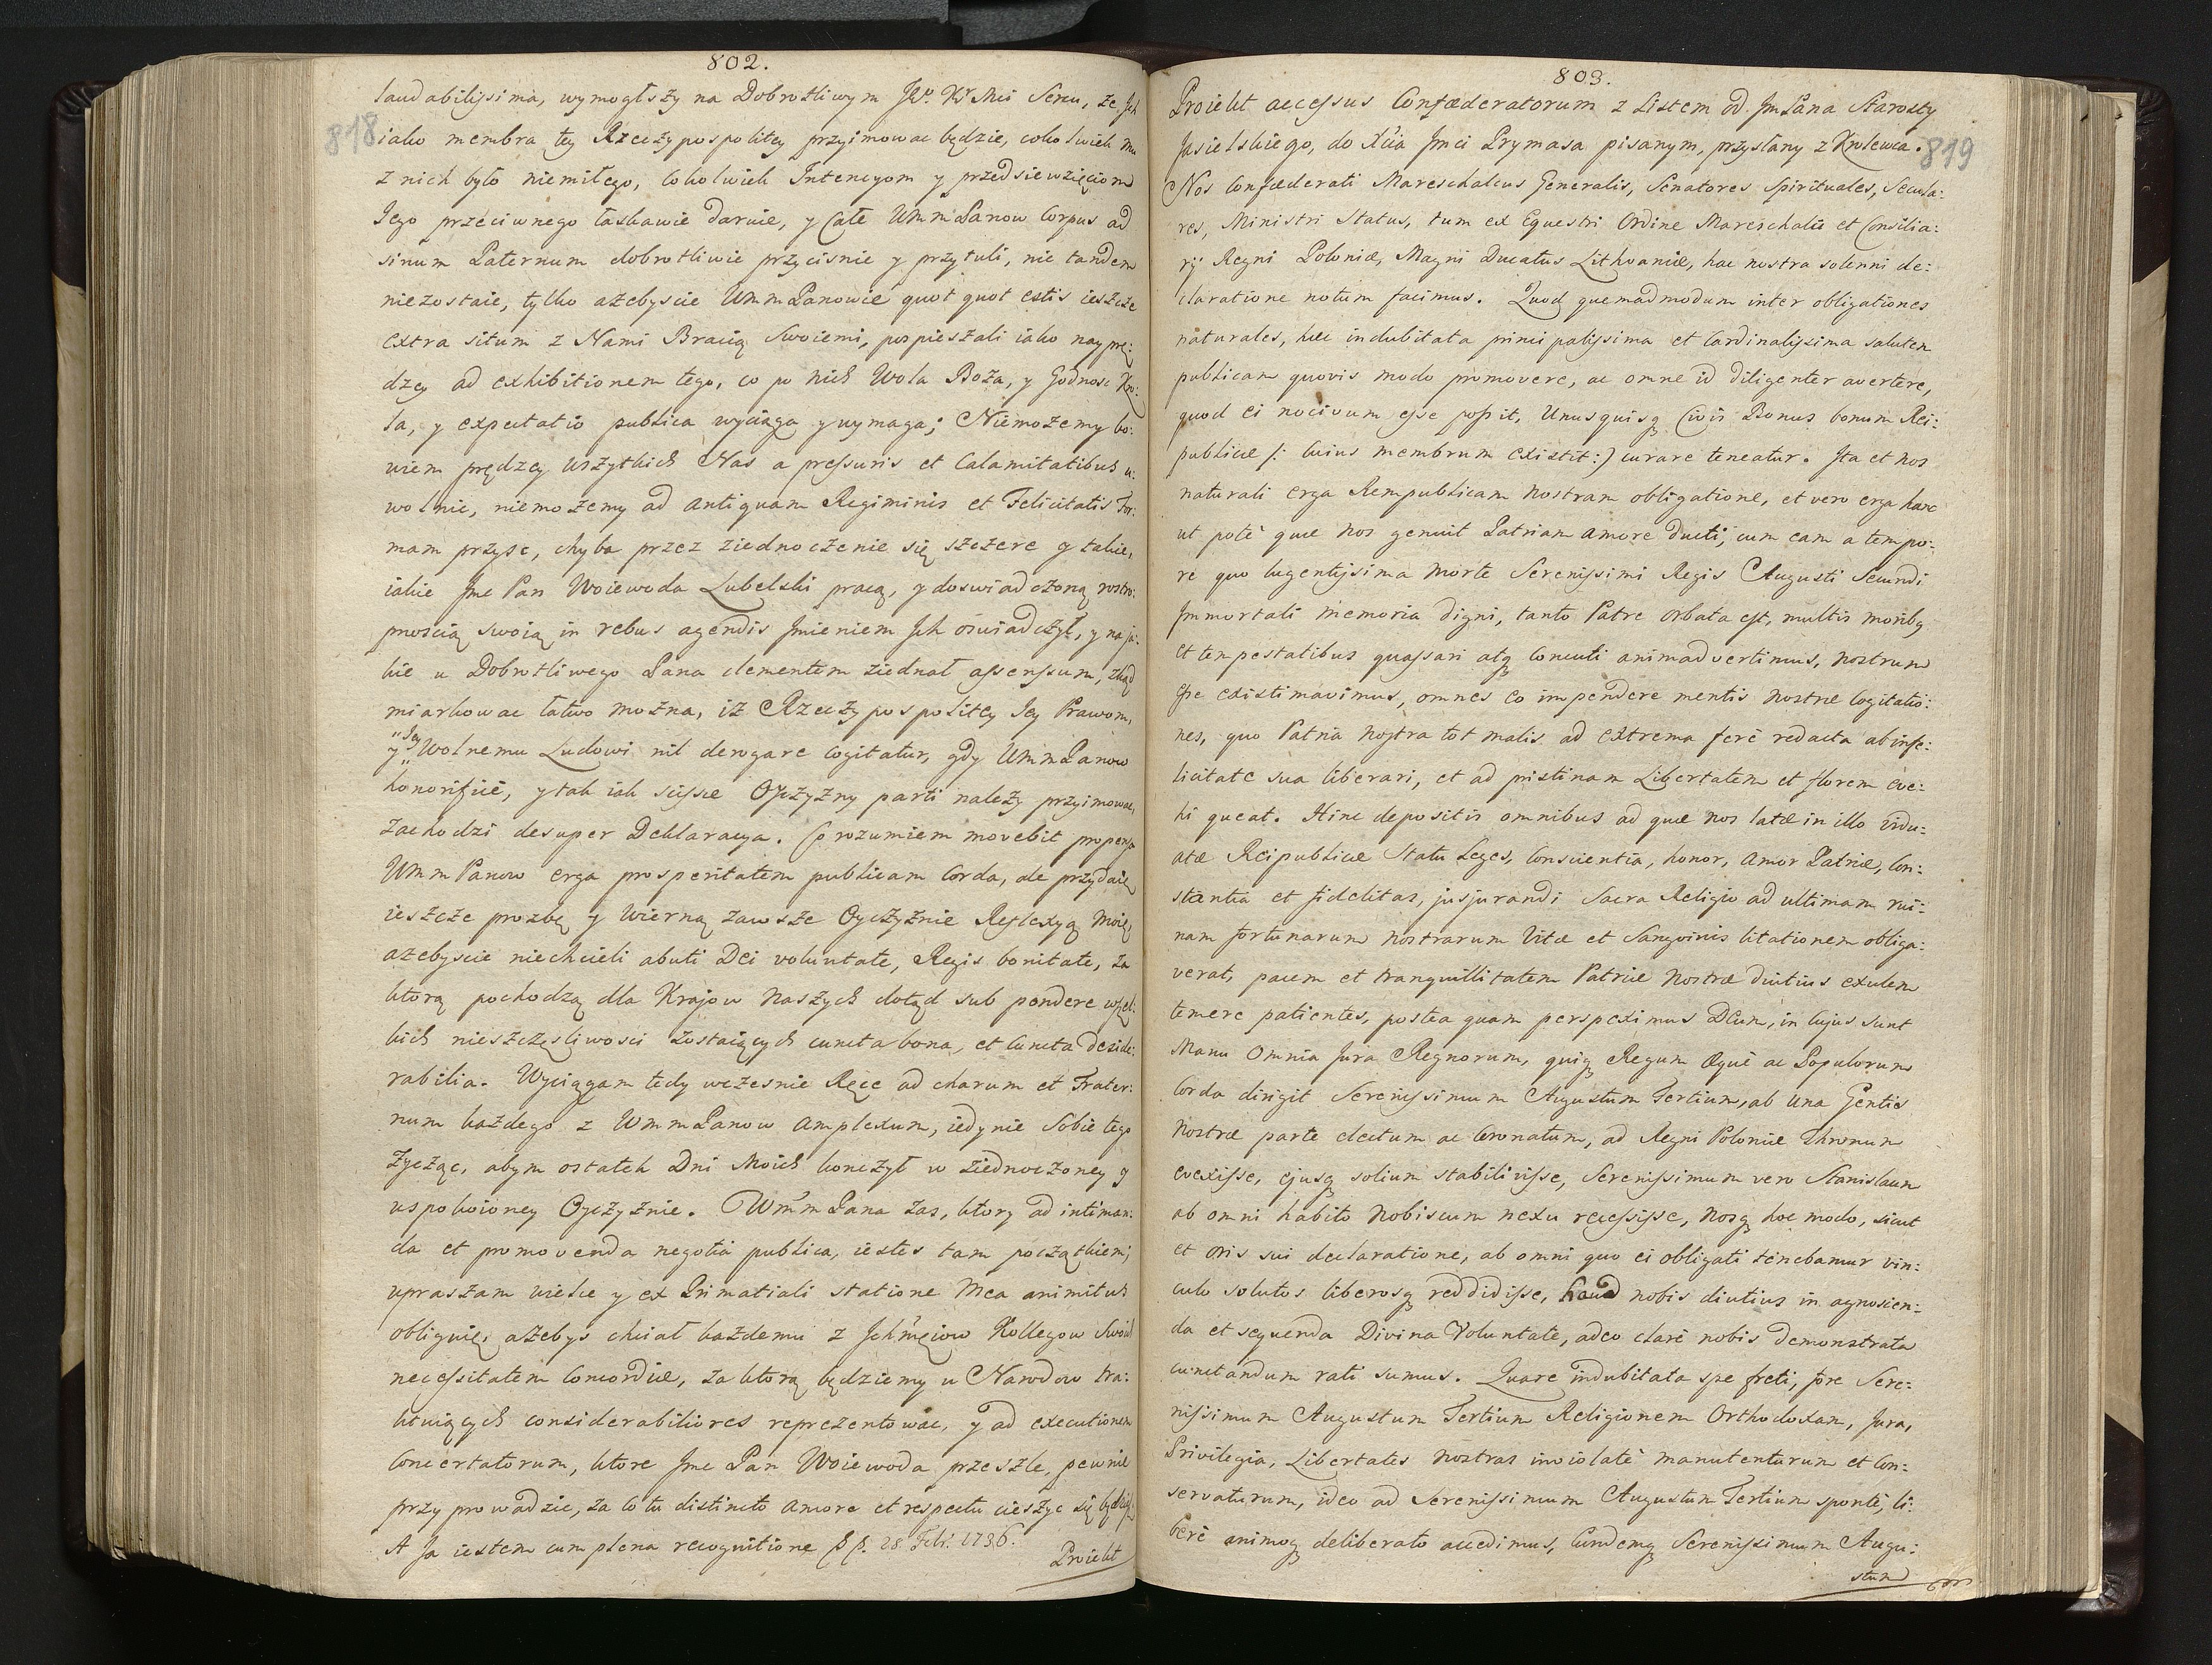 802.
laudabilissima, wymogłszy na Dobrotliwym JKr. Mci Sercu, że Jch
818
iako membra tey Rzeczypospolitey przyimowac będzie, cokolwiek mu
z nich było niemiłego, cokolwiek Intencyom y przedsiewzięciom
Jego przeciwnego łaskawie daruie, y Całe UmmPanow Corpus ad
sinum Paternum dobrotliwie przycisnie y przytuli, nic tandem
niezostaie, tylko azebyscie UmmPanowie quot quot estis ieszcze
extra situm z Nami Bracią Swoiemi, pospieszali iako nayprę:
dzey ad exhibitionem tego, co po nich Wola Boża, y Godnosc Kro:
la, y expectatio publica wyciąga y wymaga; Niemożemy bo:
wiem prędzey wszytkich Nas a pressuris et Calamitatibus u:
wolnic, niemożemy ad antiquam Regiminis et Felicitatis For:
mam przysc, chyba przez ziednoczenie się szczere y takie,
iakie Jmc Pan Woiewoda Lubelski pracą, y doswiadczoną rostro:
pnoscią swoią in rebus agendis Jmieniem Jch oswiadczył, y na ja:
kie u Dobrotliwego Pana clementem ziednał assensum, zkąd
miarkowac łatwo można, iż Rzeczypospolitey Jey Prawom,
y Jey Wolnemu Ludowi nil derogare cogitatur, gdy UmmPanow
honorificè, y tak iak scissæ Oyczyzny parti należy przyimowac,
zachodzi desuper Deklaracya. Co rozumiem movebit propensa
UmmPanow erga prosperitatem publicam Corda, ale przydaię
ieszcze prozbę y Wierną zawsze Oyczyznie Reflexyą moię,
azebyscie niechcieli abuti Dei voluntate, Regis bonitate, za
ktorą pochodzą dla Krajow Naszych dotąd sub pondere wszel:
kich nieszczęsliwosci zostaiących cuncta bona, et cuncta deside:
rabilia. Wyciągam tedy wczesnie Ręce ad charum et Frater:
num każdego z WmmPanow amplexum, iedynie Sobie tego
zycząc, abym ostatek Dni Moich konczył w ziednoczoney y
uspokoioney Oyczyznie. WmmPana zas, ktory ad intiman:
da et promovenda negotia publica, iestes tam początkiem,
upraszam wielce y ex Primatiali statione Mea animitus
obliguię, azebys chciał każdemu z Jchmciow Kollegow Swoich
necessitatem Concordiæ, za ktorą będziemy u Narodow tra:
ktuiących considerabiliores reprezentowac, y ad executionem
Concertatorum, ktore Jmc Pan Woiewoda przeszle, pewnie
przyprowadzic, za co tu distincto amore et respectu cieszyc się będziesz
A Ja iestem cum plena recognitione p p. 28 Febr. 1736.
Proiekt
803.
Proiekt accessus Confæderatorum z Listem od Jm Pana Starosty
Jasielskiego, do Xcia Jmci Prymasa pisanym, przysłany z Krolewca.
819
Nos Confæderati Mareschalcus Generalis, Senatores Spirituales, Secula:
res, Ministri Status, tum ex Equestri Ordine Mareschalci et Consilia:
rij Regni Poloniæ, Magni Ducatus Lithvaniæ, hac nostra solenni de:
claratione notum facimus. Quod quemadmodum inter obligationes
naturales, hæc indubitata principalissima et Cardinalissima salutem
publicam quovis modo promovere, ac omne id diligenter avertere,
quod ei nocivum esse possit, Unusquisq Civis Bonus bonum Rei:
publicæ /: cuius membrum existit :/ curare teneatur. Jta et nos
naturali erga Rempublicam Nostram obligatione, et vero erga hanc
ut potè quæ nos genuit Patriam amore ducti, cum eam a tempo:
re quo lugentissima morte Serenissimi Regis Augusti Secundi
Jmmortali memoria digni, tanto Patre orbata est, multis motibq
et tempestatibus quassari atq concuti animadvertimus, nostrum
esse existimavimus, omnes eo impendere mentis nostræ cogitatio:
nes, quo Patria nostra tot malis ad extrema ferè redacta ab infe:
licitate sua liberari, et ad pristinam Libertatem et florem eve:
hi queat. Hinc depositis omnibus ad quæ nos latæ in illo vidu:
atæ Reipublicæ Statu Leges, Conscientia, honor, Amor Patriæ, Con:
stantia et fidelitas, jusjurandi Sacra Religio ad ultimam rui:
nam fortunarum nostrarum Vitæ et Sangvinis litationem obliga:
verat, pacem et tranquillitatem Patriæ Nostræ diutius exulem
temere patientes, postea quam perspeximus Deum, in cujus sunt
Manu Omnia Jura Regnorum, quiq Regum æquè ac Populorum
Corda dirigit Serenissimum Augustum Tertium, ab una Gentis
Nostræ parte electum ac Coronatum, ad Regni Poloniæ Thronum
evexisse, ejusq solium stabilivisse, Serenissimum vero Stanislaum
ab omni habito Nobiscum nexu recessisse, Nosq hoc modo, sicut
et oris sui declaratione, ab omni quo ei obligati tenebamur vin:
culo solutos liberosq reddidisse, haud nobis diutius in agnoscen:
da et sequenda Divina Voluntate, adeo clarè nobis demonstrata
cunctandum rati sumus. Quare indubitata spe freti, fore Sere:
nissimum Augustum Tertium Religionem Orthodoxam, Jura,
Privilegia, Libertates Nostras inviolatè manutenturum et Con:
servaturum, ideo ad Serenissimum Augustum Tertium spontè, li:
berè animoq deliberato accedimus, Eundemq Serenissimum Augu:
stum